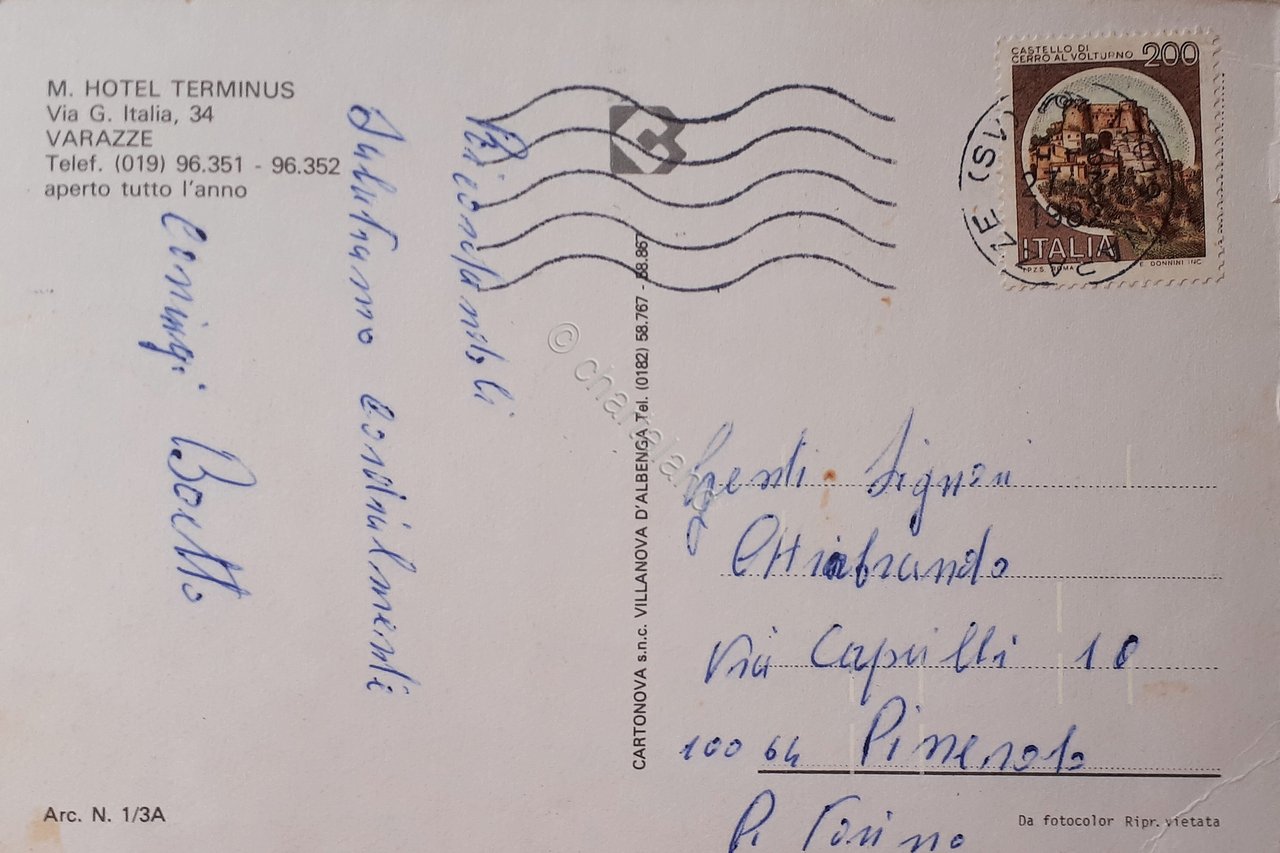 M. HOTEL TERMINUS
Via G. Italia, 34
VARAZZE
Telef. (019) 96.351 - 96.352
aperto tutto l'anno
Ricordandoli
Salutiamo Cordialmente
Bocllo
CARTONOVA s.n.c. VILLANOVA D'ALBENGA Tel. (0182) 58.767 - 58.867
CASTELLO DI
CERRO AL VOLTURNO 200
ITALIA
I.P.Z.S. ROMA E. DONNINI INC
27
1982
© charta
Gentli Signori
Chiabrando
Via Caprilli 10
10064 Pinerolo
Pr Torino
Arc. N. 1/3A
Da fotocolor Ripr. vietata